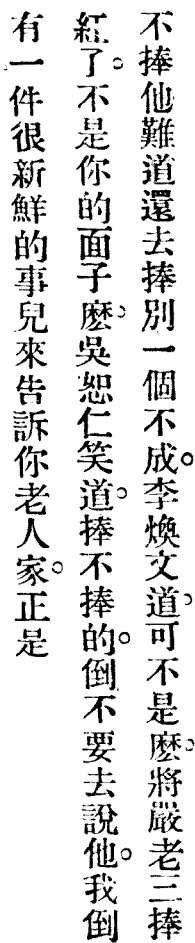 不捧他難道還去捧別一個不成。李煥文道。可不是麽。將嚴老三捧
紅了。不是你的面子麽。吳恕仁笑道。捧不捧的。倒不要去說他。我倒
有一件很新鮮的事兒來告訴你老人家。正是